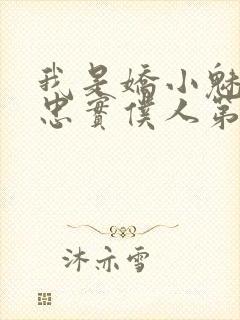 我是嬌小魅
忠實僕人第
沐亦雪